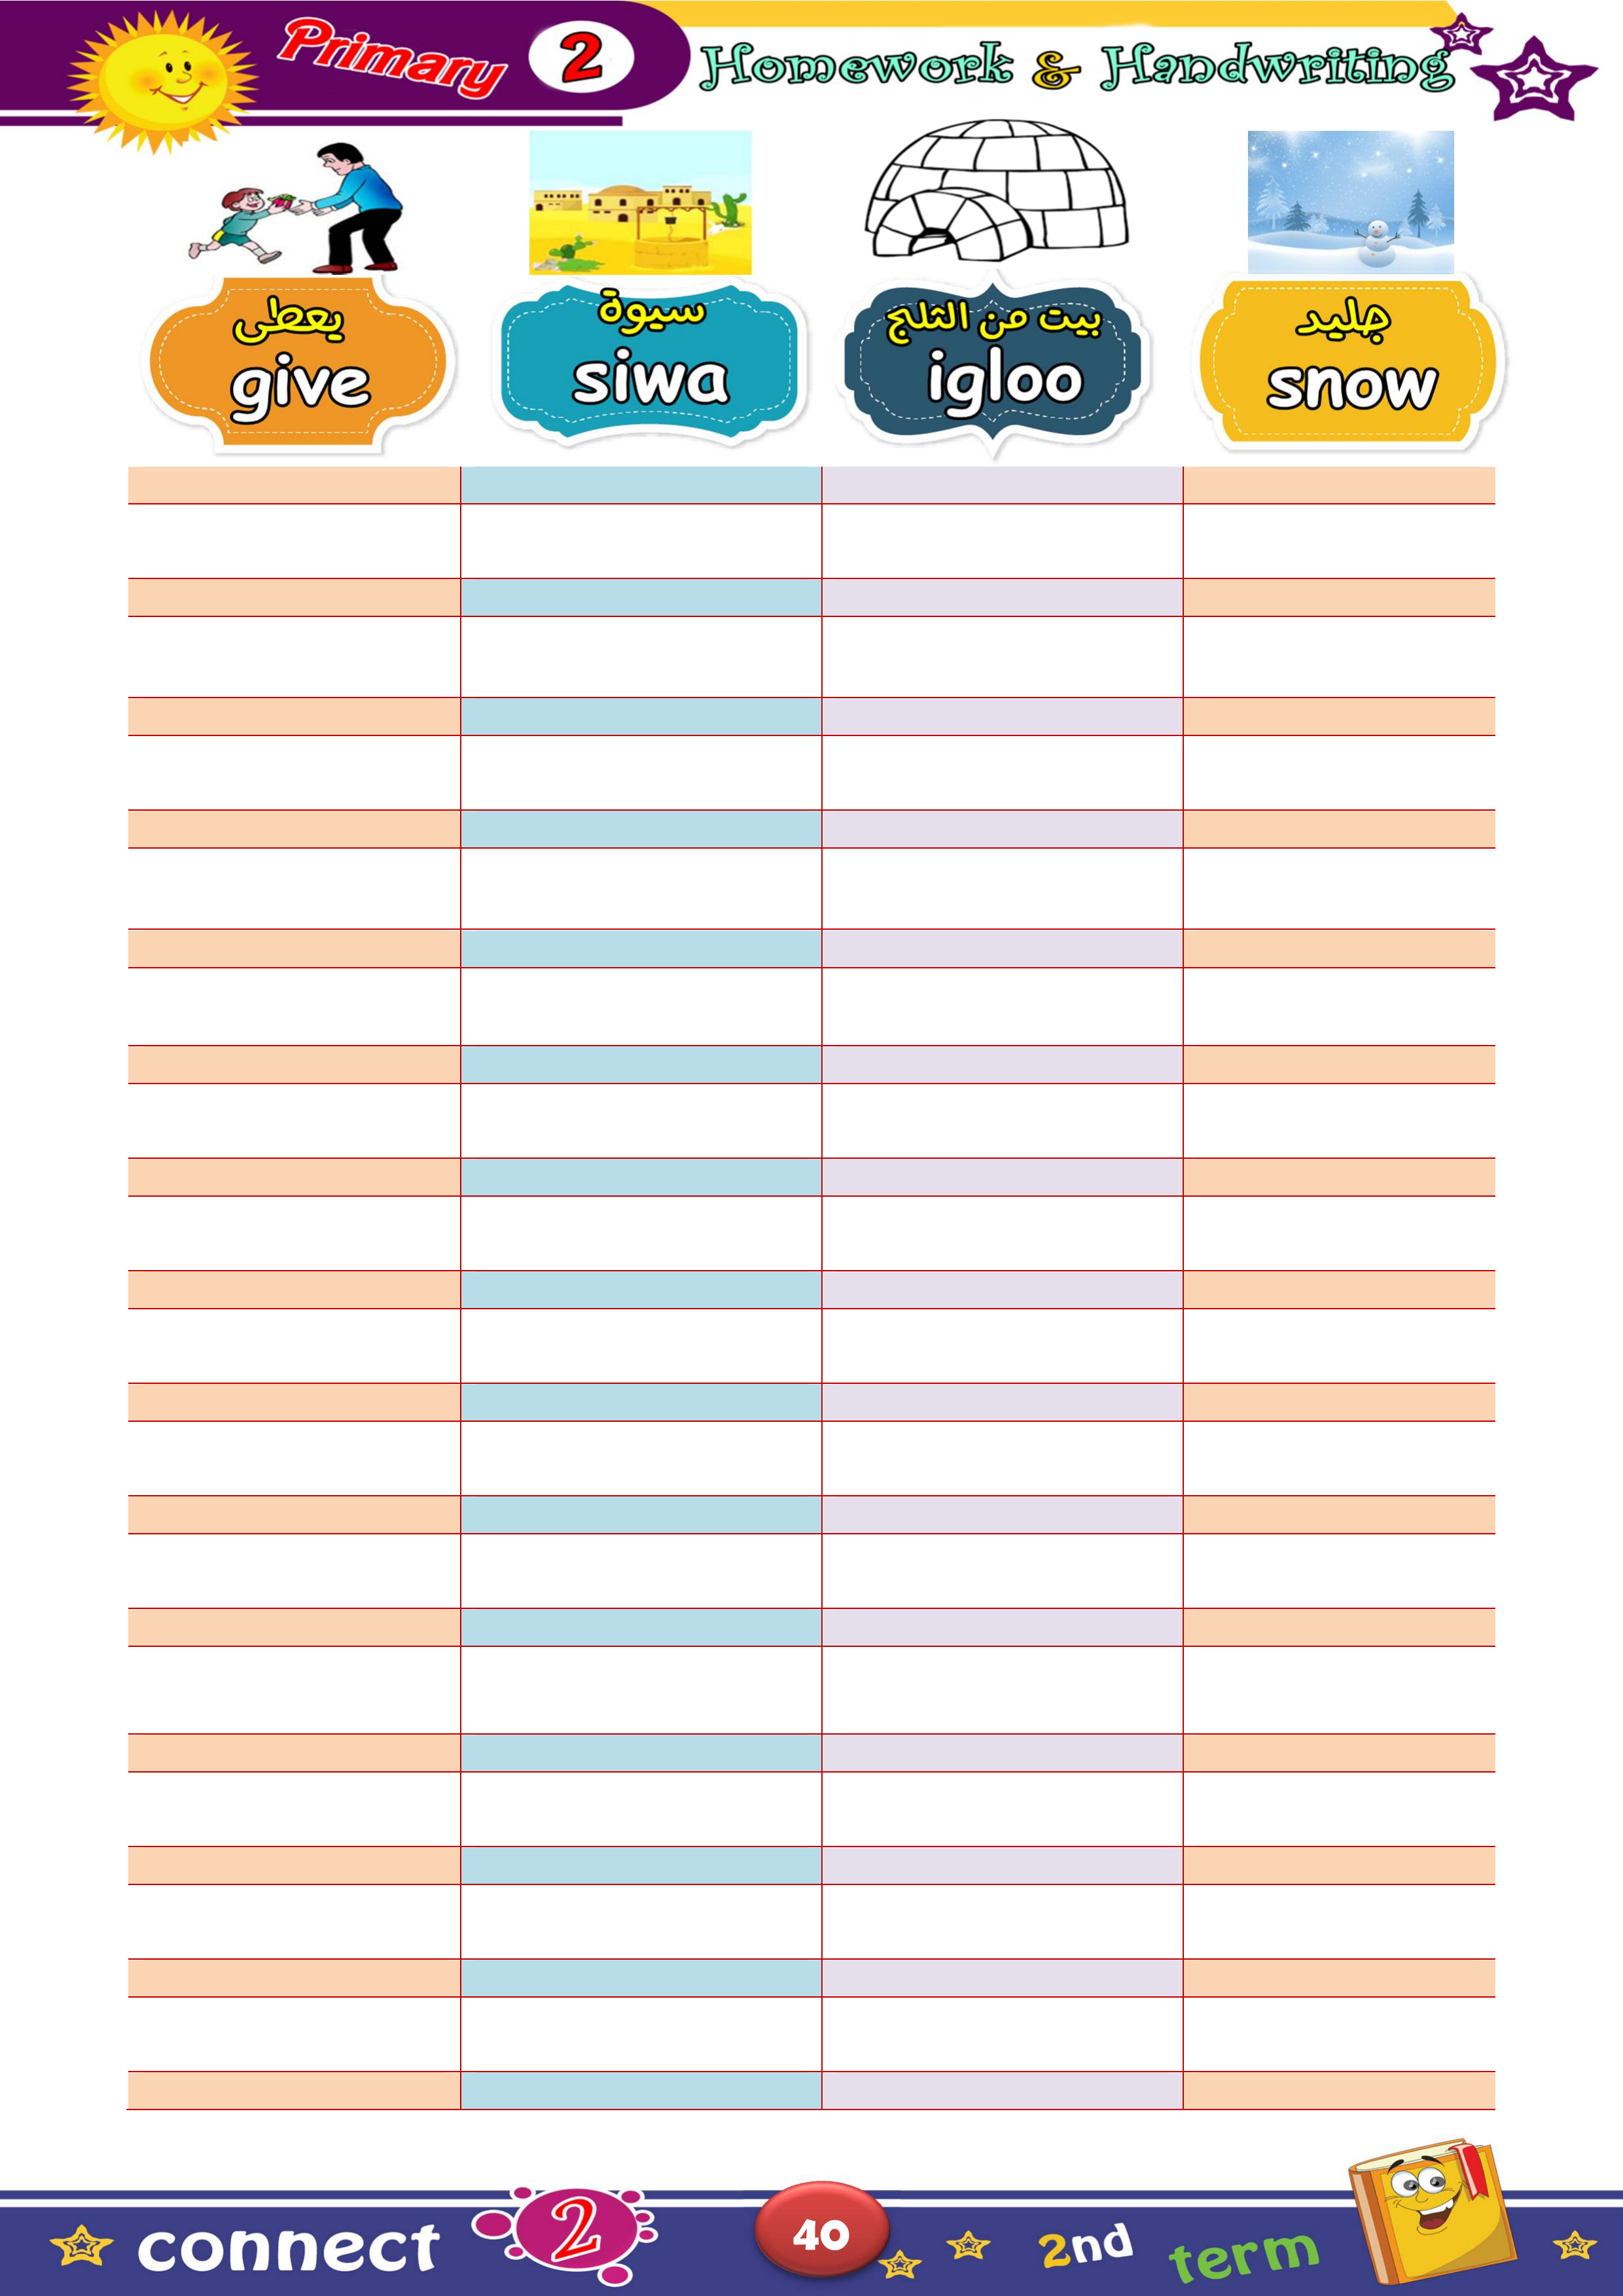 Primary 2 Homework & Handwriting
يعطى
give
سيوة
siwa
بيت من الثلج
igloo
جليد
snow
connect 2 40 2nd term